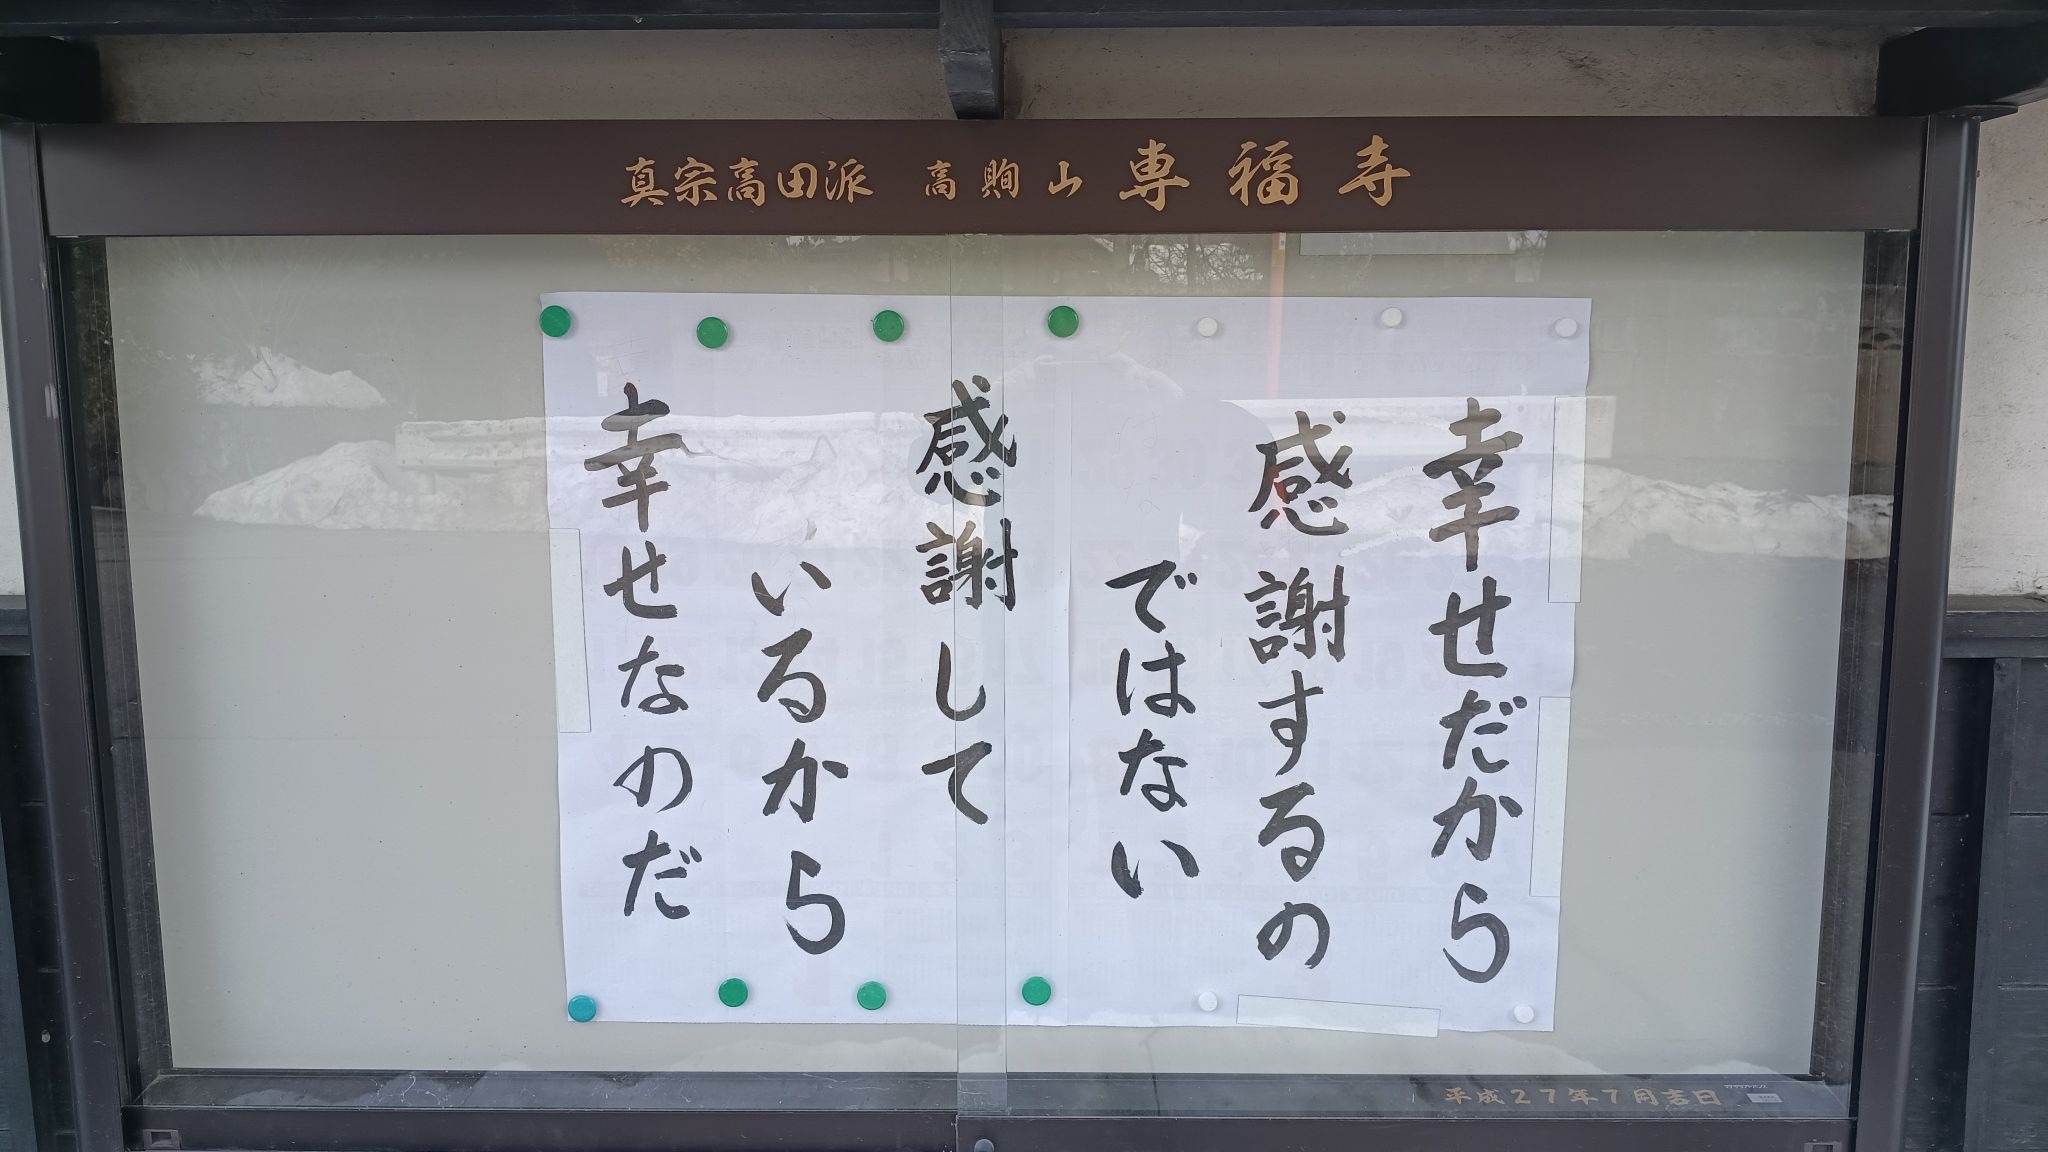 真宗高田派 高賙山 専福寺
幸せだから
感謝するの
ではない
感謝して
いるから
幸せなのだ
平成27年7月吉日